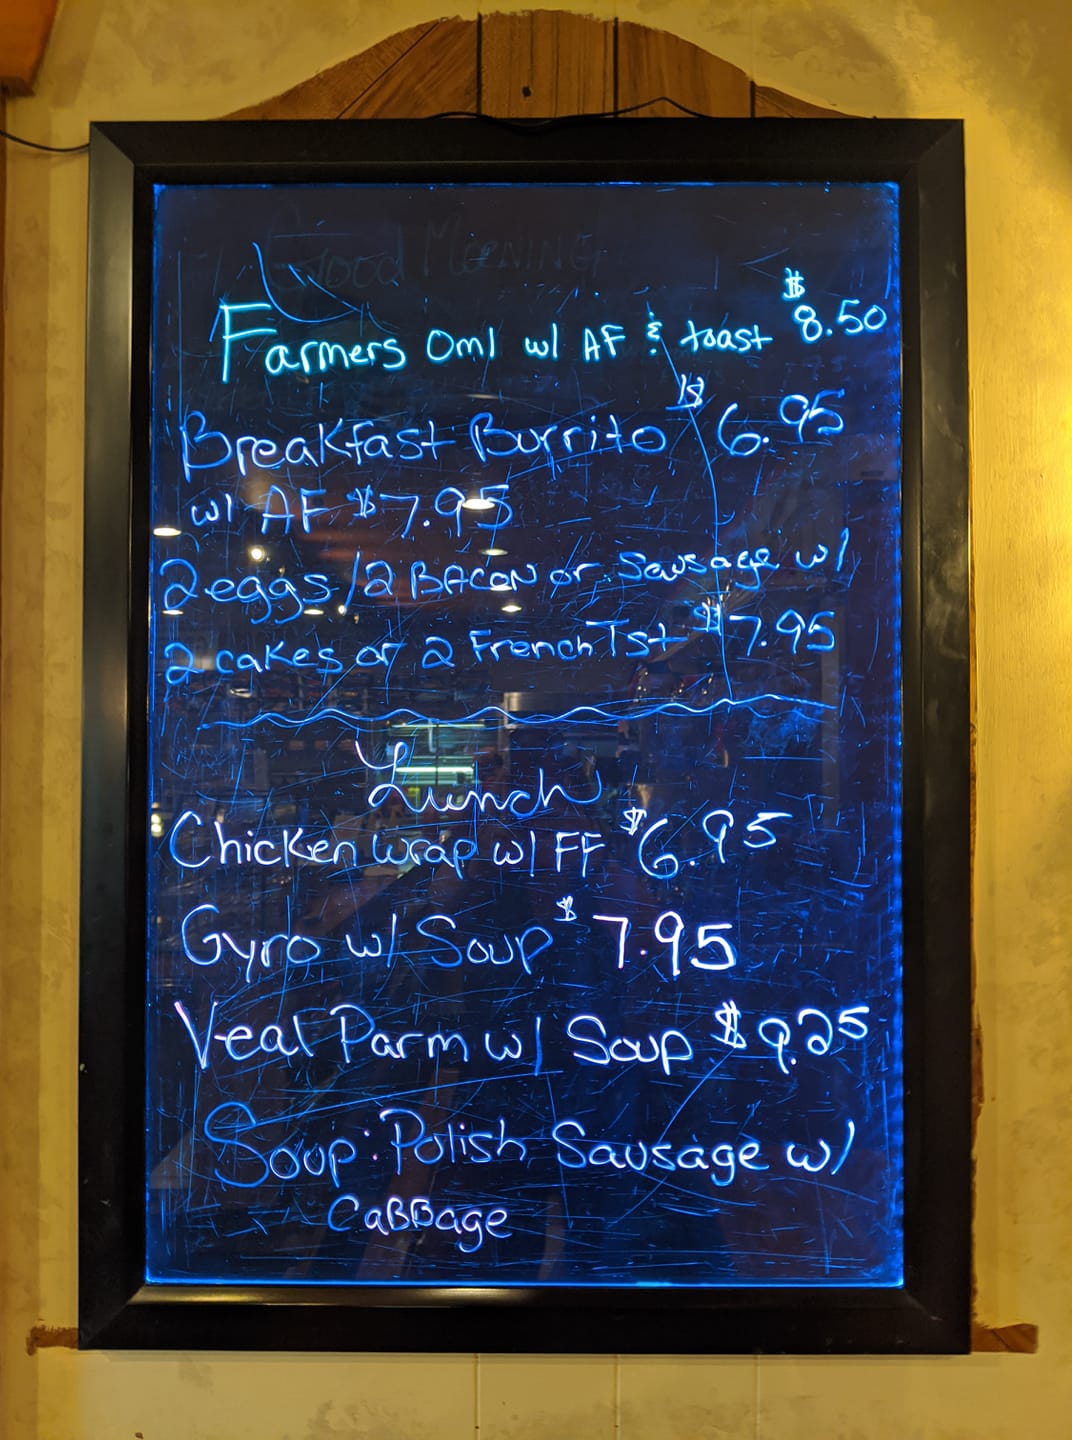 Good Morning
Farmers Oml w/ AF & toast $8.50
Breakfast Burrito $6.95
w/ AF $7.95
2 eggs/2 BACON or Sausage w/
2 cakes or 2 French Tst $7.95
Lunch
Chicken wrap w/ FF $6.95
Gyro w/ Soup $7.95
Veal Parm w/ Soup $9.25
Soup: Polish Sausage w/
CaBBage